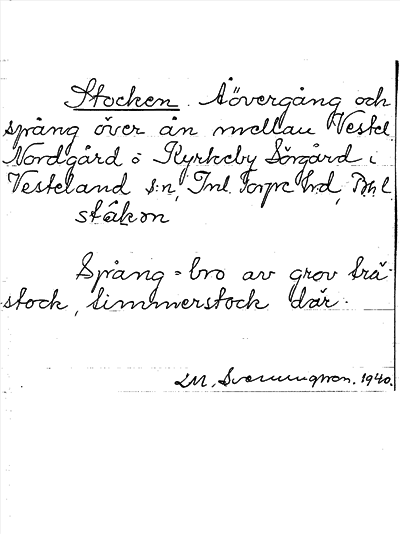 Stocken. Åövergång och
spång över ån mellan Vestel.
Nordgård o Kyrkeby Sörgård i
Vesteland s:n, Inl. Torpe hd, Bh. l.
ståkən
Spång = bro av grov trä-
stock, timmerstock där.
LM. Svenungsson. 1940.